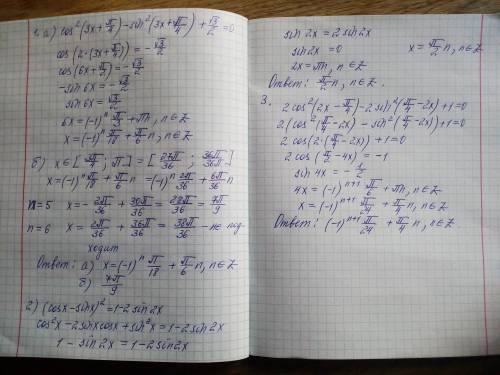 1. а) cos²(3x + π/4) - sin²(3x + π/4) + √3/2 = 0
cos(2·(3x + π/4)) = -√3/2
cos(6x + π/2) = -√3/2
-sin 6x = -√3/2
sin 6x = √3/2
6x = (-1)ⁿ π/3 + πn, n∈Z
x = (-1)ⁿ π/18 + π/6 n, n∈Z
б) x∈[3π/4; π] = [27π/36; 36π/36]
x = (-1)ⁿ π/18 + π/6 n = (-1)ⁿ 2π/36 + 6π/36 n
n=5 x = -2π/36 + 30π/36 = 28π/36 = 7π/9
n=6 x = 2π/36 + 36π/36 = 38π/36 - не под
ходит
Ответ: а) x = (-1)ⁿ π/18 + π/6 n, n∈Z
б) 7π/9
2) (cos x - sin x)² = 1 - 2 sin 2x
cos²x - 2 sin x cos x + sin²x = 1 - 2 sin 2x
1 - sin 2x = 1 - 2 sin 2x
sin 2x = 2 sin 2x
sin 2x = 0 x = π/2 n, n∈Z
2x = πn, n∈Z
Ответ: π/2 n, n∈Z.
3.
2 cos²(2x - π/4) - 2 sin²(π/4 - 2x) + 1 = 0
2(cos²(π/4 - 2x) - sin²(π/4 - 2x)) + 1 = 0
2 cos(2·(π/4 - 2x)) + 1 = 0
2 cos(π/2 - 4x) = -1
sin 4x = -1/2
4x = (-1)ⁿ⁺¹ π/6 + πn, n∈Z
x = (-1)ⁿ⁺¹ π/24 + π/4 n, n∈Z
Ответ: (-1)ⁿ⁺¹ π/24 + π/4 n, n∈Z